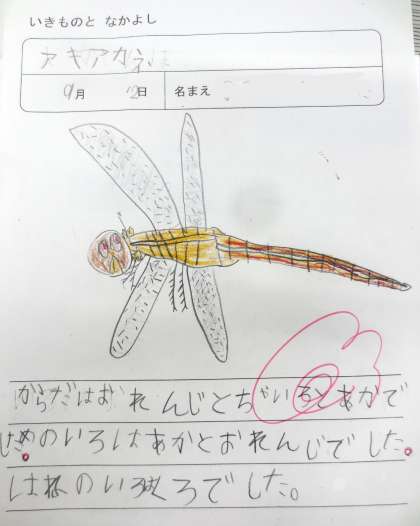 いきものと なかよし
アキアカネ
9月 2日 名まえ
からだはおれんじとちゃいろとあかで
した。めのいろはあかとおれんじでした。
はねのいろはくろでした。